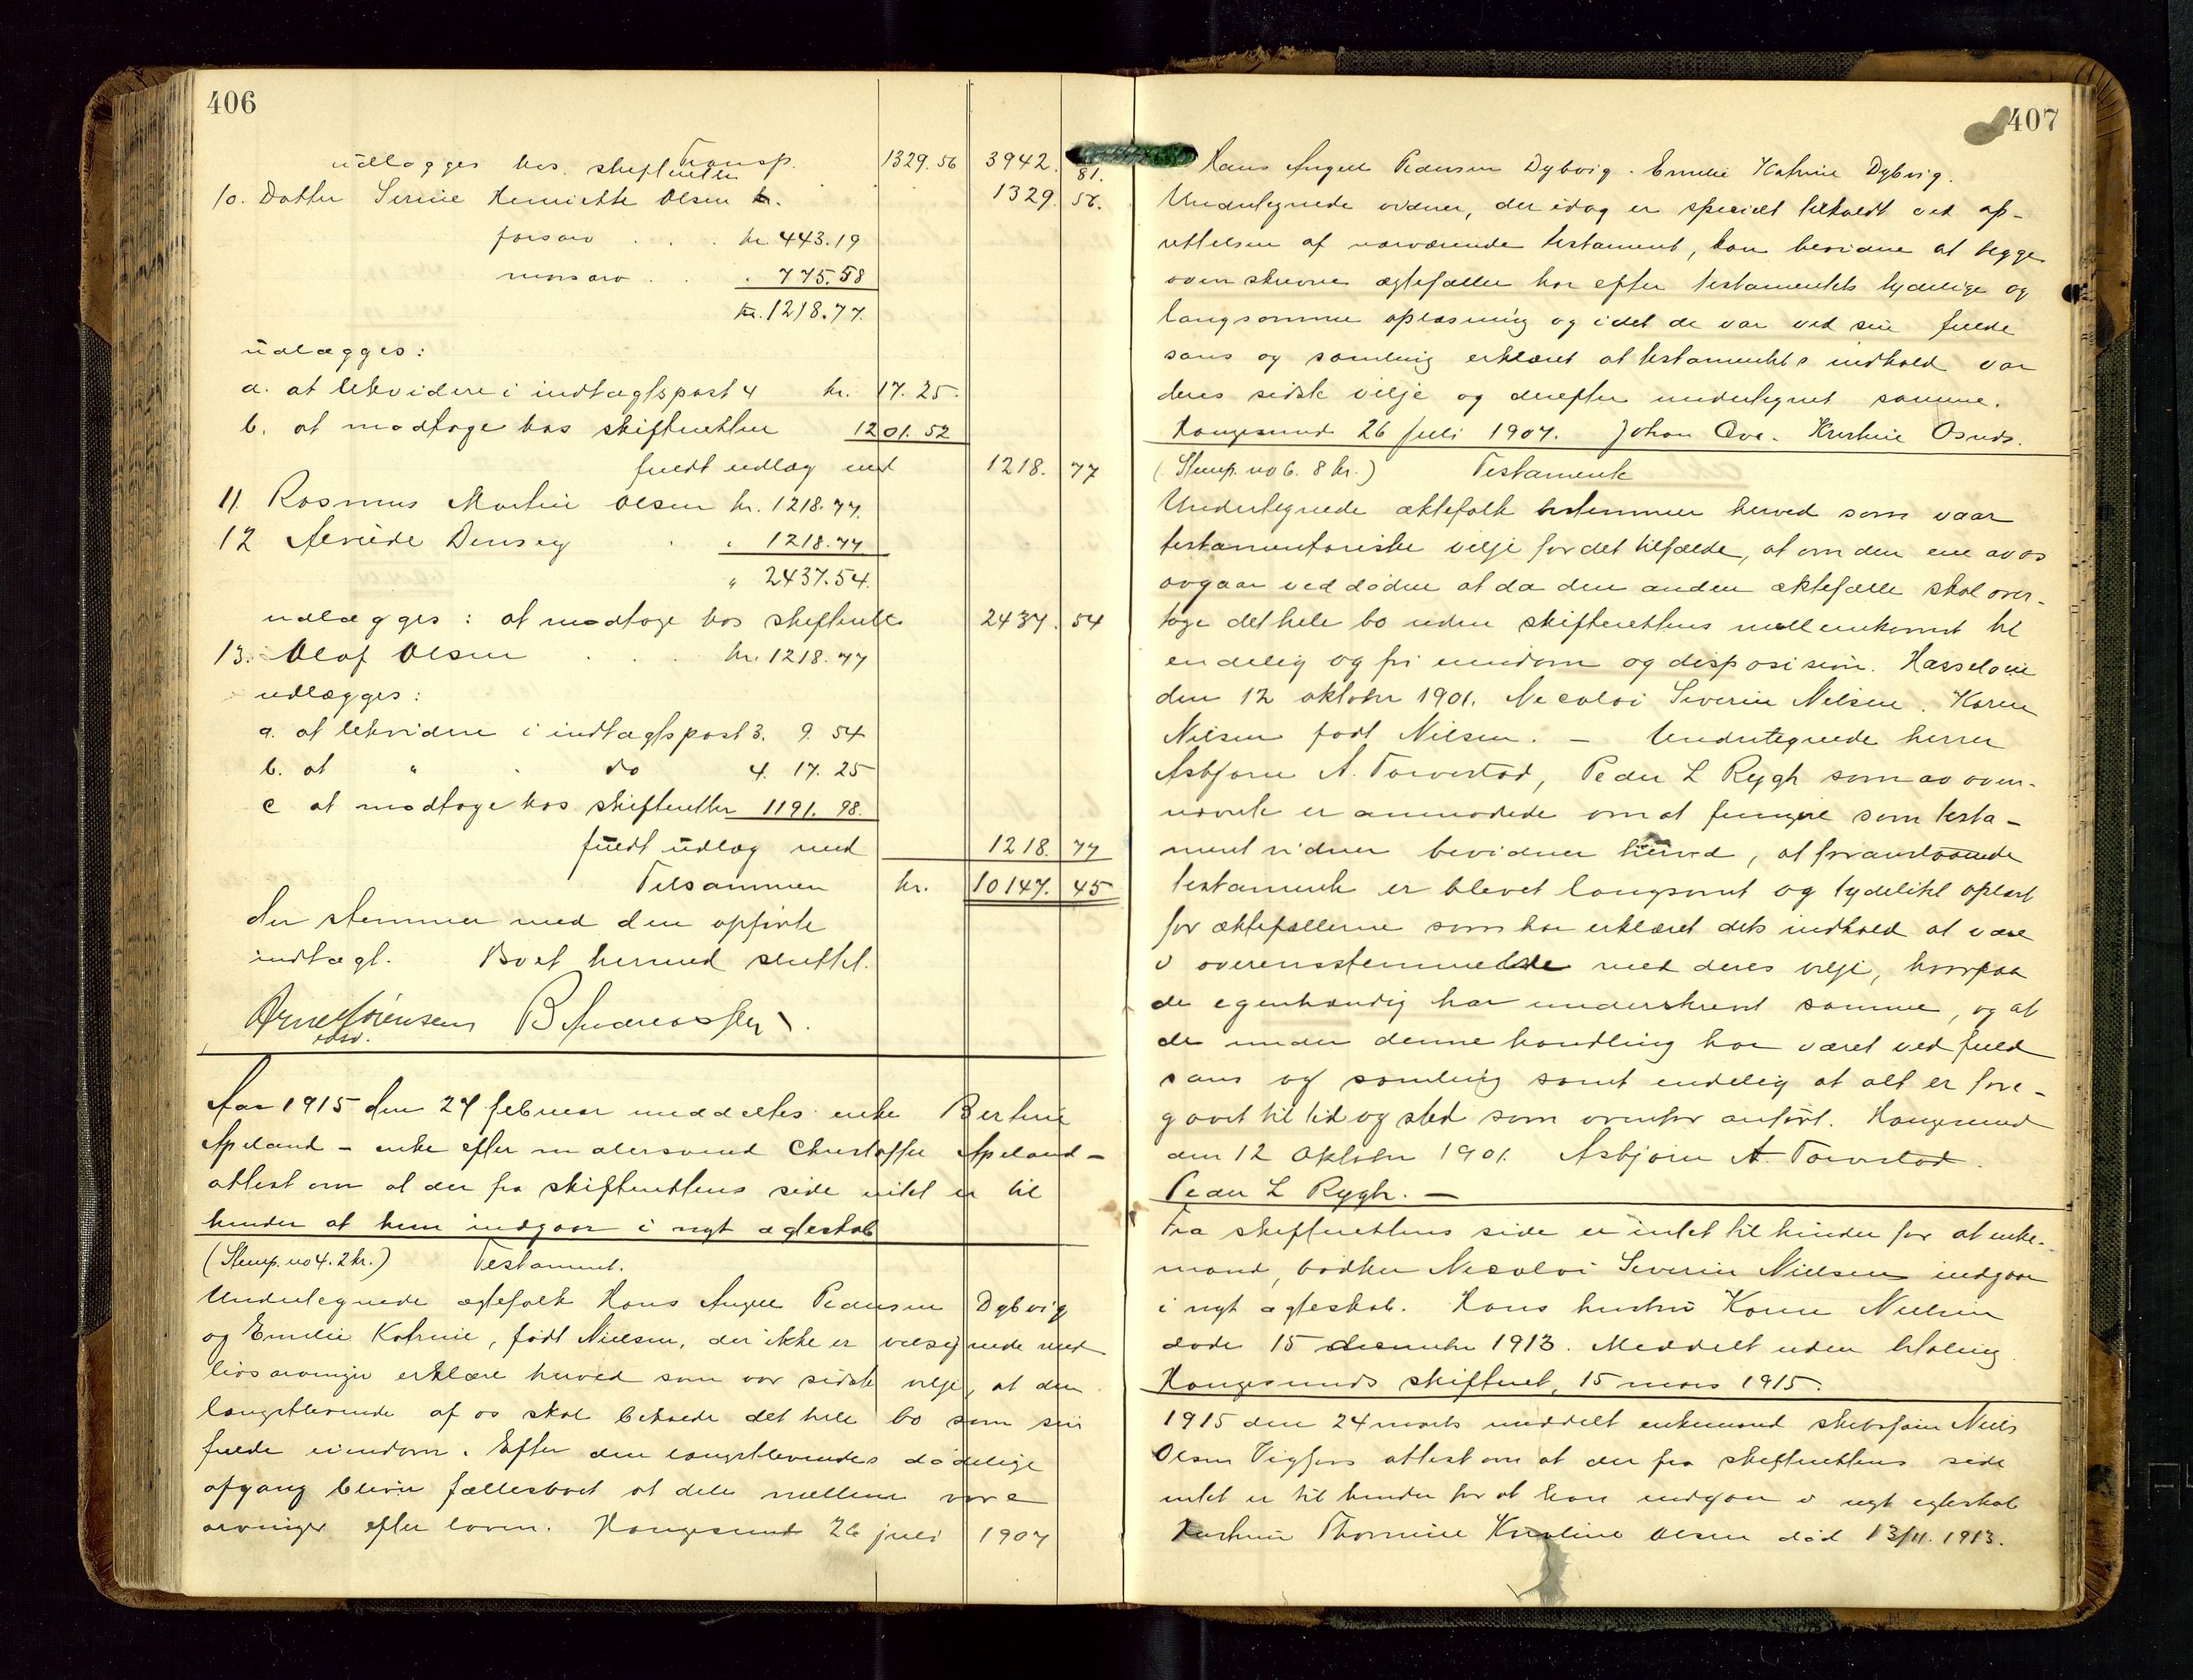 406
Transp. 1329.56 3942. 81.
udlægges hos skifteretten 1329. 56.
10. Datter Serine Henriette Olsen kr.
farsarv . . . kr. 443.19
morsarv . . . 775.58
kr. 1218.77.
udlægges:
a. at likvidere i indtægtspost 4 kr. 17.25.
b. at modtage hos skifteretten 1201.52
fuldt udlæg med 1218. 77
11. Rasmus Martin Olsen kr. 1218.77.
12 Densey " 1218.77
" 2437.54.
udlægges: at modtage hos skifterett. 2437. 54
13. Olaf Olsen . . . kr. 1218.77
udlægges:
a. at likvidere i indtægtspost 3. 9. 54
b. at " . do 4. 17. 25
c at modtage hos skifteretten 1191. 98.
fuldt udlæg med 1218. 77
Tilsammen kr. 10147. 45
der stemmer med den opførte
indtægt. Boet hermed sluttet.
Arne Sørensen B Andreassen.
edsv.
Aar 1915 den 24 februar meddeltes enke Bertine
Apeland - enke efter malersvend Christoffer Apeland -
attest om at der fra skifterettens side intet er til
hinder at hun indgaar i nyt ægteskab
(Stemp. no 4. 2 kr.) Testament.
Undertegnede ægtefolk Hans Angell Pedersen Dybvig
og Emilie Katrine, født Nielsen, der ikke er velsignede med
livsarvinger erklære herved som vor sidste vilje, at den
længstlevende af os skal beholde det hele bo som sin
fulde eiendom. Efter den længstlevendes dødelige
afgang bliver fællesboet at dele mellem vore
arvinger efter loven. Haugesund 26 juli 1907
407
Hans Angell Pedersen Dybvig. Emilie Katrine Dybvig.
Undertegnede vidner, der idag er specielt tilkaldt ved op-
rettelsen af nærværende testament, kan bevidne at begge
ovenskrevne ægtefæller har efter testamentets tydelige og
langsomme oplæsning og idet de var ved sin fulde
sans og samling erklæret at testamentets indhold var
deres sidste vilje og derefter undertegnet samme.
Haugesund 26 Juli 1907. Johan Ove. Kristine Osnes.
(Stemp. no 6. 8 kr.) Testamente
Undertegnede æktefolk bestemmer herved som vaar
testamentariske vilje for det tilfælde, at om den ene av os
avgaar ved døden at da den anden æktefælle skal over-
tage det hele bo uden skifterettens mellemkomst til
endelig og fri eiendom og disposision. Hasseløen
den 12 oktober 1901. Necolai Severin Nilsen. Karen
Nilsen født Nilsen. - Undertegnede herrer
Asbjørn A. Torvestad, Peder L Rygh som av oven-
nævnte er anmodede om at fungere som testa-
mentvidner bevidner herved, at foranstaaende
testamente er blevet langsomt og tydeligt oplæst
for æktefællerne som har erklæret dets indhold at være
i overensstemmelse med deres vilje, hvorpaa
de egenhændig har underskrevet samme, og at
de under denne handling har været ved fuld
sans og samling samt endelig at alt er fore-
gaaet til tid og sted som ovenfor anført. Haugesund
den 12 Oktober 1901. Asbjørn A. Torvestad.
Peder L Rygh. -
Fra skifterettens side er intet til hinder for at enke-
mand, bødker Necolai Severin Nielsen indgaar
i nyt ægteskab. Hans hustru Karen Nielsen
døde 15 december 1913. Meddelt uden betaling.
Haugesunds skifteret, 15 mars 1915.
1915 den 24 marts meddelt enkemand skibsfører Niels
Olsen Vigsfors attest om at der fra skifterettens side
intet er til hinder for at han indgaar i nyt egteskab
Hustruen Thomine Karoline Olsen død 13/11. 1913.